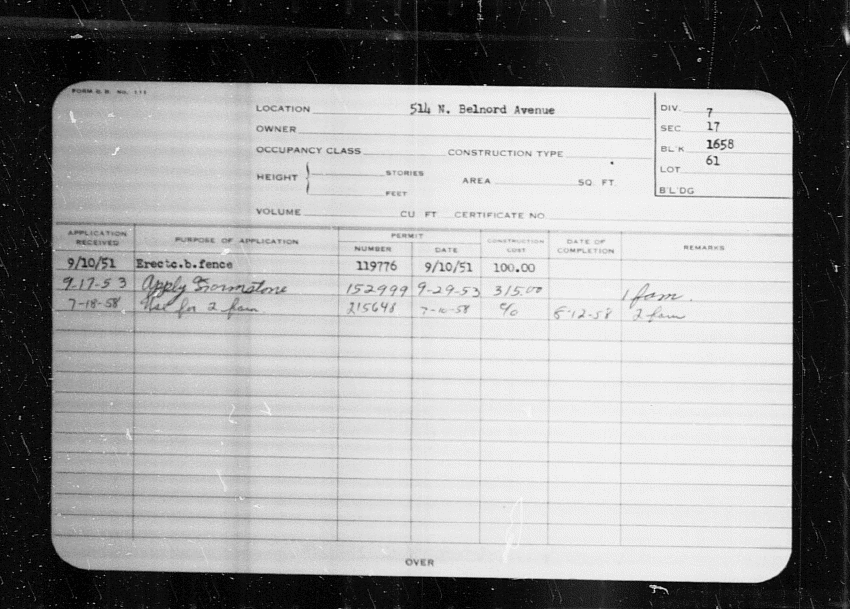 FORM D. B. No. 111
LOCATION 514 N. Belnord Avenue
OWNER
OCCUPANCY CLASS CONSTRUCTION TYPE
HEIGHT STORIES
FEET
AREA SQ. FT.
VOLUME CU FT CERTIFICATE NO
DIV. 7
SEC 17
BL'K 1658
LOT 61
B'L'DG
APPLICATION RECEIVED PURPOSE OF APPLICATION PERMIT NUMBER DATE CONSTRUCTION COST DATE OF COMPLETION REMARKS
9/10/51 Erectc.b.fence 119776 9/10/51 100.00
9-17-53 Apply Formstone 152999 9-29-53 315.00 1 fam.
7-18-58 Use for 2 fam. 215648 c/o 2 fam
OVER